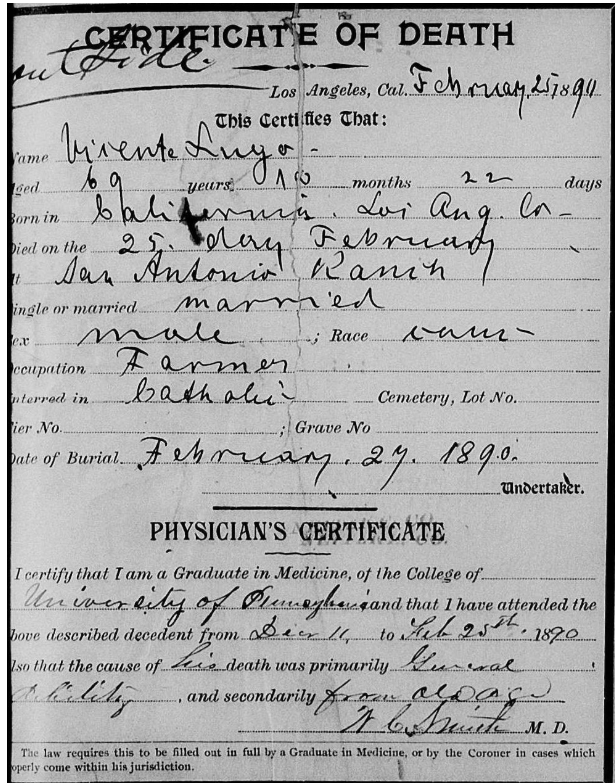 CERTIFICATE OF DEATH
out Side.
Los Angeles, Cal. February, 25, 1890
This Certifies That:
ame Vicente Lugo -
ged 69 years 10 months 22 days
orn in California. Los Ang. Co-
ied on the 25. day February
t San Antonio Ranch
ingle or married married
ex male ; Race cauc-
ccupation Farmer
nterred in Catholic Cemetery, Lot No.
ier No. ; Grave No
ate of Burial February. 27. 1890.
Undertaker.
PHYSICIAN'S CERTIFICATE
I certify that I am a Graduate in Medicine, of the College of
University of Pennsylvania and that I have attended the
bove described decedent from Decr 11, to Feb 25th. 1890
lso that the cause of his death was primarily General
debility, and secondarily from old age
W C Smith M. D.
The law requires this to be filled out in full by a Graduate in Medicine, or by the Coroner in cases which
operly come within his jurisdiction.